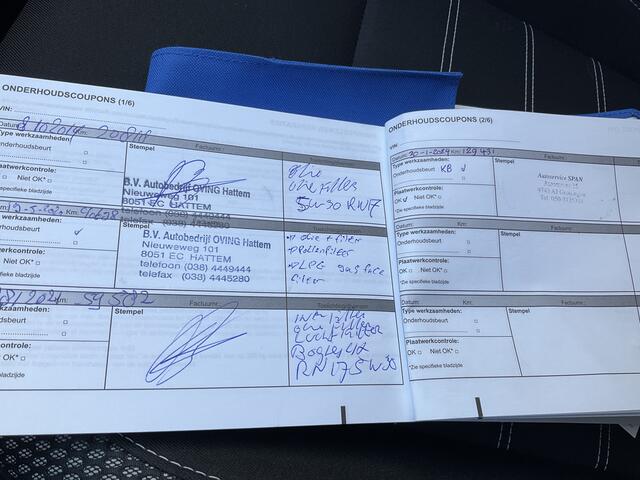 ONDERHOUDSCOUPONS (1/6)
VIN:
Datum: 8/10/2019 Km:
Type werkzaamheden:
Onderhoudsbeurt
Plaatwerkcontrole:
OK Niet OK*
*Zie specifieke bladzijde
Stempel
B.V. Autobedrijf OVING Hattem
Nieuweweg 101
8051 EC HATTEM
telefoon (038) 4449444
Factuurnr.:
olie
oliefilter
5W-30 RN17
Km:
werkzaamheden:
Onderhoudsbeurt
Plaatwerkcontrole:
Niet OK*
specifieke bladzijde
Stempel
B.V. Autobedrijf OVING Hattem
Nieuweweg 101
8051 EC HATTEM
telefoon (038) 4449444
telefax (038) 4445280
Toelichtingen/normen
olie + filter
Pollenfilter
LPG gas fase
filter
Km:
werkzaamheden:
Onderhoudsbeurt
Plaatwerkcontrole:
OK Niet OK*
bladzijde
Factuurnr.:
Stempel
olie filter
Luchtfilter
Bougies 4x
RN17 5W30
ONDERHOUDSCOUPONS (2/6)
VIN:
Datum: 30-1-2024 Km: 129.431
Type werkzaamheden:
Onderhoudsbeurt KB
Plaatwerkcontrole:
OK Niet OK*
*Zie specifieke bladzijde
Stempel
Autoservice SPAN
Factuurnr.:
Datum: Km:
Type werkzaamheden:
Onderhoudsbeurt
Plaatwerkcontrole:
OK Niet OK*
*Zie specifieke bladzijde
Stempel
Datum: Km:
Type werkzaamheden:
Onderhoudsbeurt
Plaatwerkcontrole:
OK Niet OK*
*Zie specifieke bladzijde
Stempel
Factuurnr.: